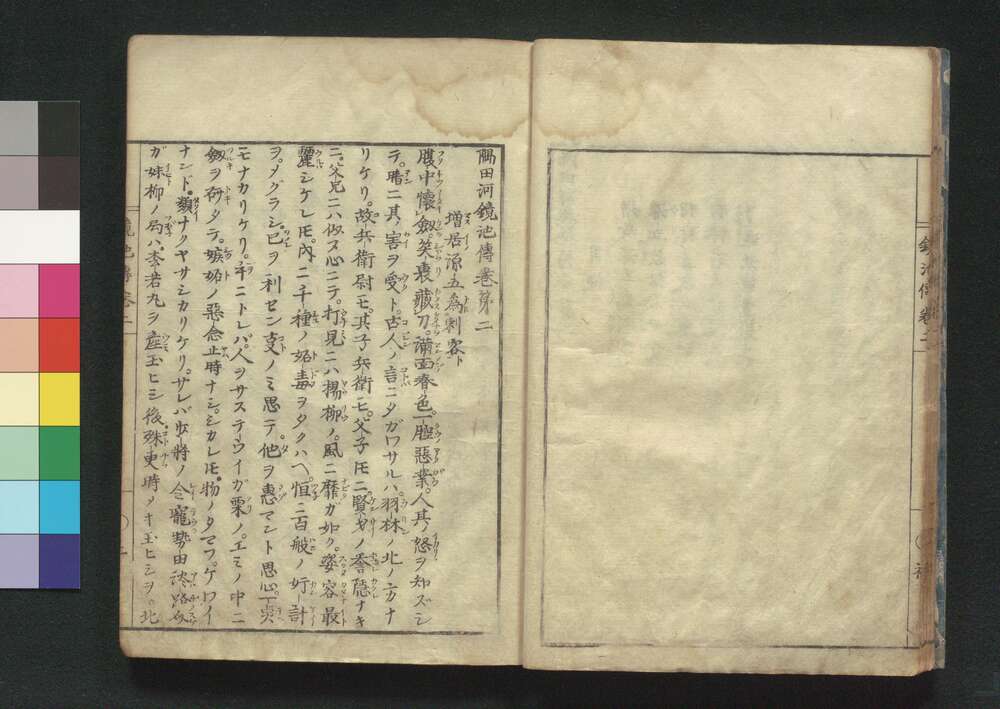 隅田河鏡池傳巻第二
増居源五為刺客ト
腹中懐劔。笑裏藏刀。満面春色。一腔惡業。人其ノ怒ヲ知ズシ
テ。暗ニ其ノ害ヲ受ト。古人ノ言ニタガワサルハ。羽林ノ北ノ方ナ
リケリ。故兵衛尉モ。其子兵衛モ。父子氏ニ。賢才ノ誉隠ナキ
ニ。父兄ニハ似ズ心ニテ。打見ニハ揚柳ノ。風ニ靡ガ如ク。姿容最
麗シケレ氏。内ニ千種ノ妬毒ヲタクハヘ。恒ニ百般ノ奸計
ヲ。メグラシ。己ヲ利セン支ノミ思テ。他ヲ惠マント思心。一点
モナカリケリ。手ニトレバ。人ヲサステウイガ栗ノ。エミノ中ニ
劔ヲ研タテ。嫉妬ノ惡念止時ナシ。シカレ氏。物ノタマフ。ケワイ
ナンド。類ナクヤサシカリケリ。サレバ
ガ妹柳ノ局ハ。李若丸ヲ産玉ヒシ後。殊更時メキ玉ヒシヲ。北
鏡池傳巻二